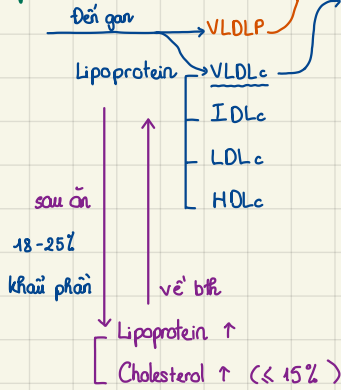 Đến gan
VLDLP
Lipoprotein
VLDLc
IDLc
LDLc
HDLc
sau ăn
18-25%
khẩu phần
về bth
Lipoprotein ↑
Cholesterol ↑ (≤ 15%)